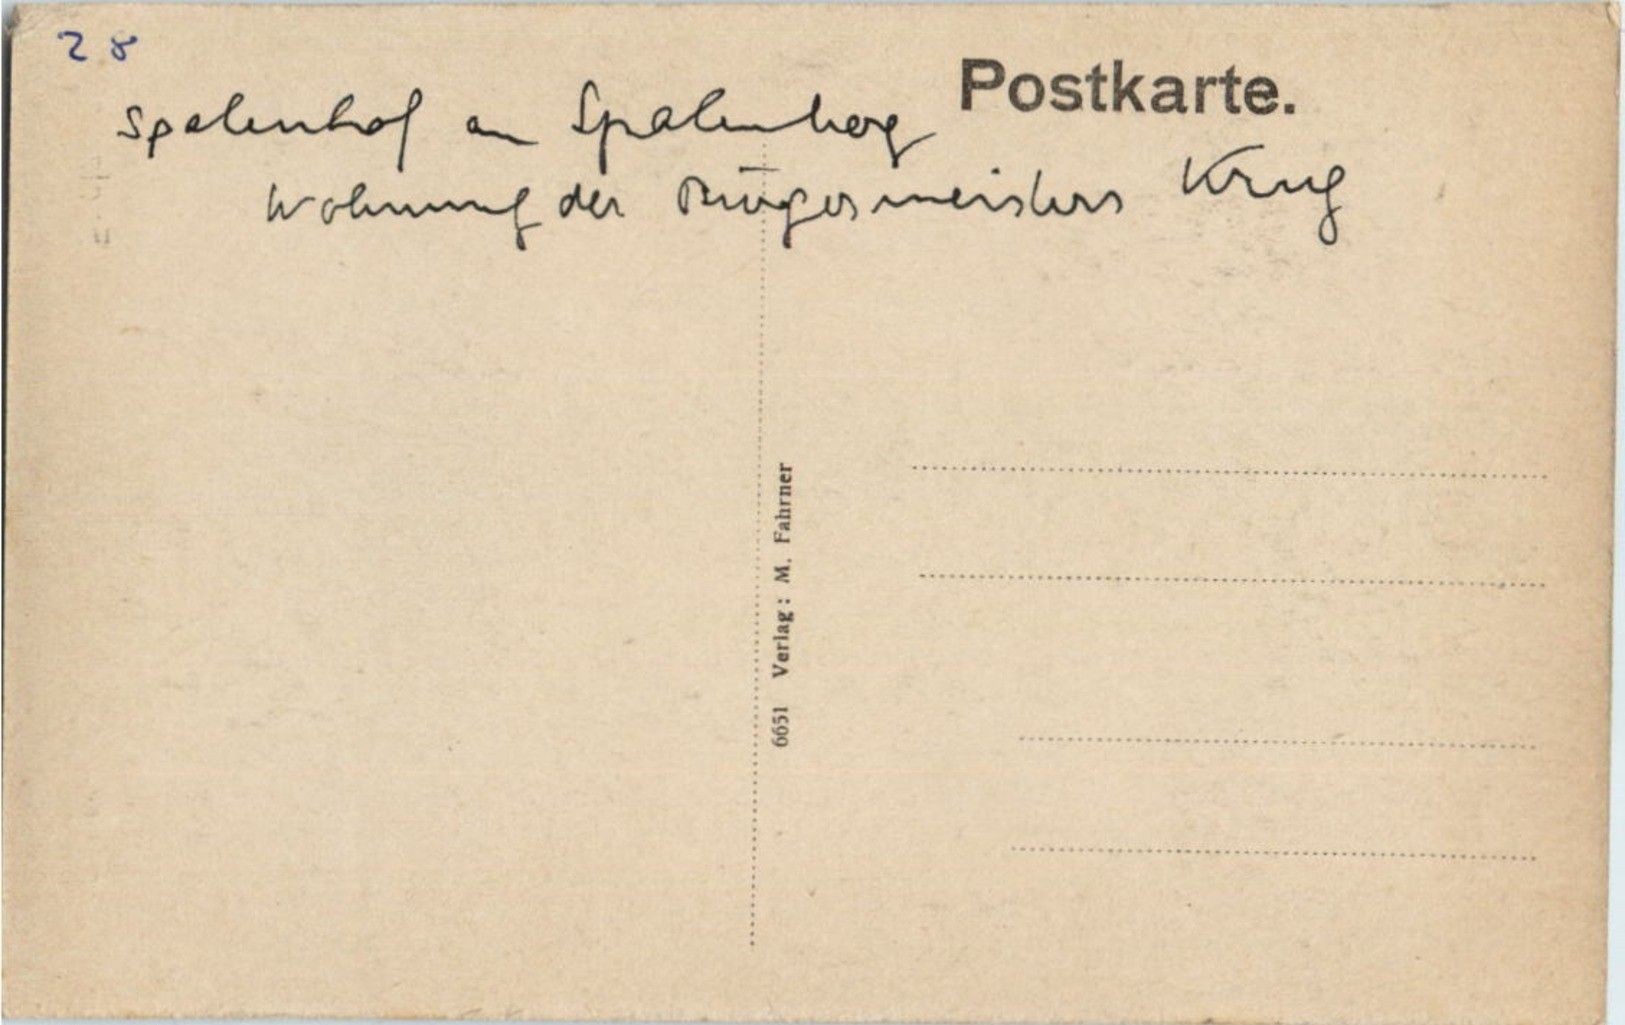 28
Postkarte.
Spalenhof am Spalenberg
Wohnung des Bürgermeisters Krug
6651 Verlag: M. Fahrner